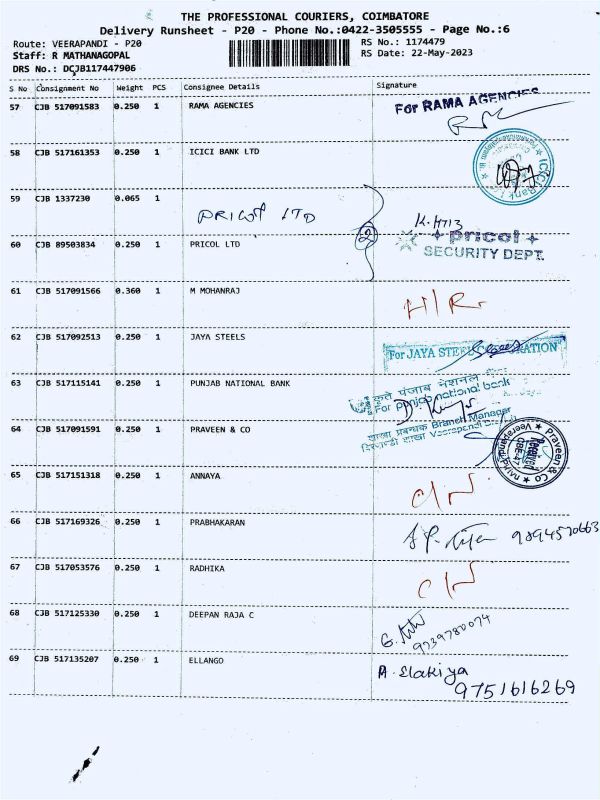 THE PROFESSIONAL COURIERS, COIMBATORE
Delivery Runsheet - P20 - Phone No.:0422-3505555 - Page No.:6
Route: VEERAPANDI - P20
RS No.: 1174479
Staff: R MATHANAGOPAL
RS Date: 22-May-2023
DRS No.: DCJB117447906
S No Consignment No Weight PCS Consignee Details Signature
57 CJB 517091583 0.250 1 RAMA AGENCIES For RAMA AGENCIES
58 CJB 517161353 0.250 1 ICICI BANK LTD
59 CJB 1337230 0.065 1
PRICOL LTD
2
60 CJB 89503834 0.250 1 PRICOL LTD
pricol
SECURITY DEPT.
61 CJB 517091566 0.360 1 M MOHANRAJ
62 CJB 517092513 0.250 1 JAYA STEELS For JAYA STEEL CORPORATION
63 CJB 517115141 0.250 1 PUNJAB NATIONAL BANK
कृते पंजाब नेशनल
For punjab national bank
शाखा प्रबन्धक Branch Manager
64 CJB 517091591 0.250 1 PRAVEEN & CO
Praveen & Co
Veerapandi
65 CJB 517151318 0.250 1 ANNAYA
66 CJB 517169326 0.250 1 PRABHAKARAN 9894570663
67 CJB 517053576 0.250 1 RADHIKA
68 CJB 517125330 0.250 1 DEEPAN RAJA C
9739780074
69 CJB 517135207 0.250 1 ELLANGO A. Elakiya
9751616269